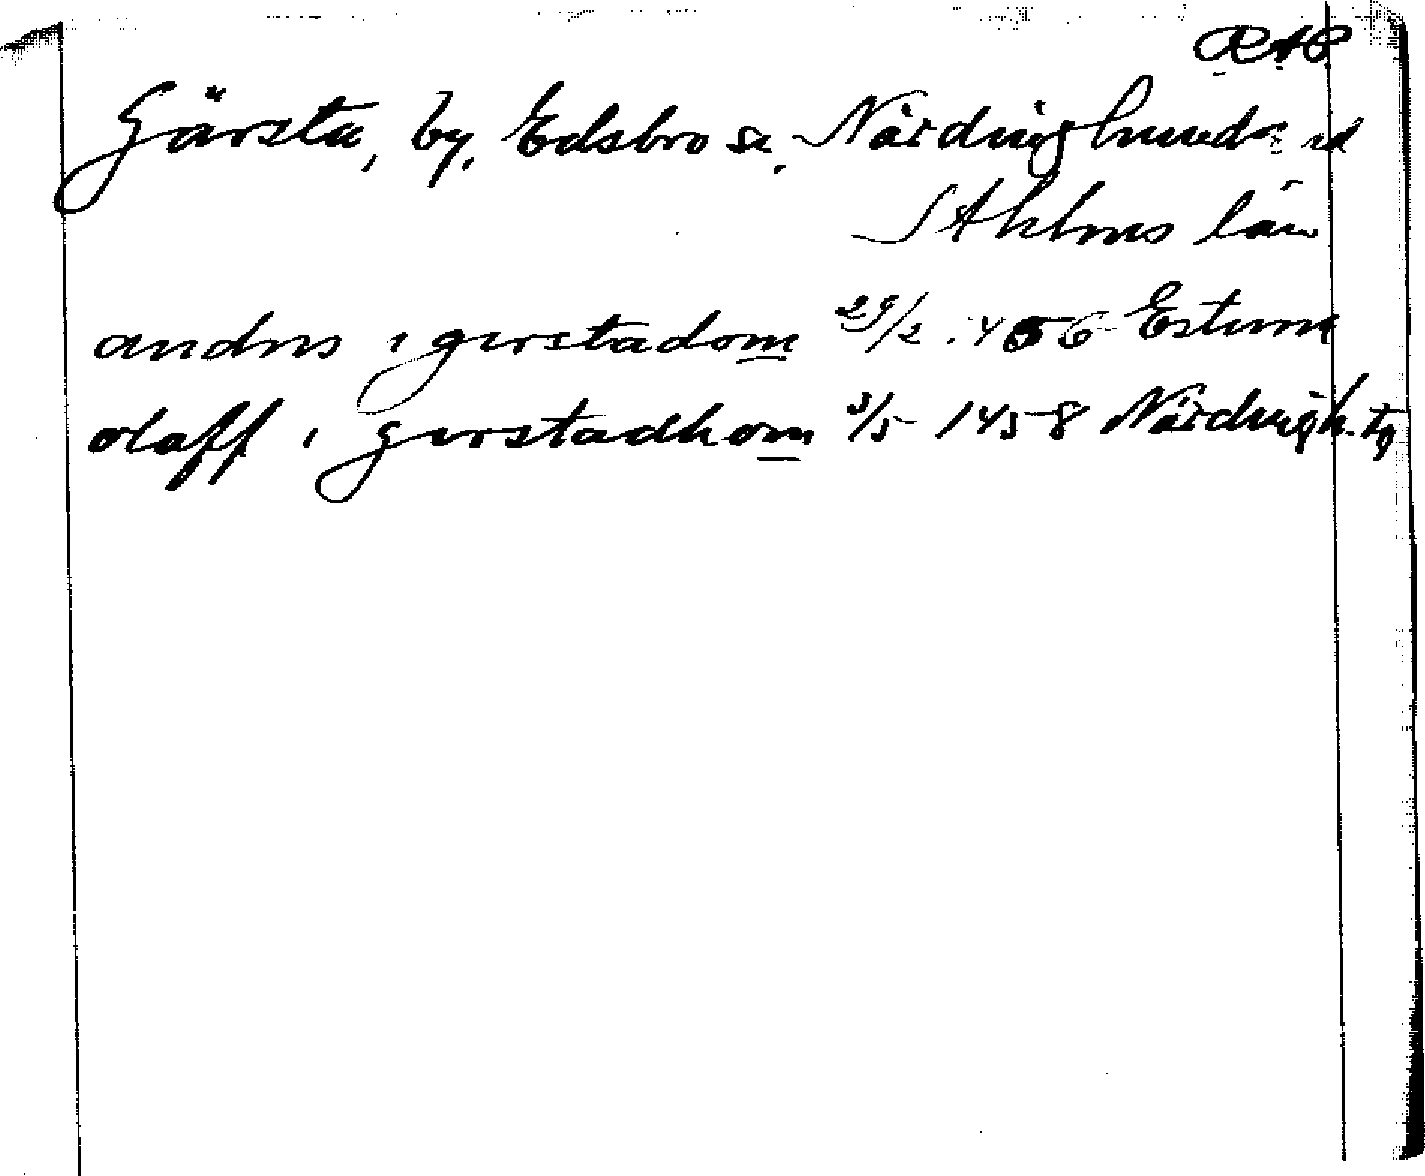 RAP
Gärsta, by, Edsbro sn, Närdinghunds hd
Sthlms län
andrs i gerstadom 29/2 1456 Estuna
olaff i gerstadhom 3/5 1458 Närdingh. tg